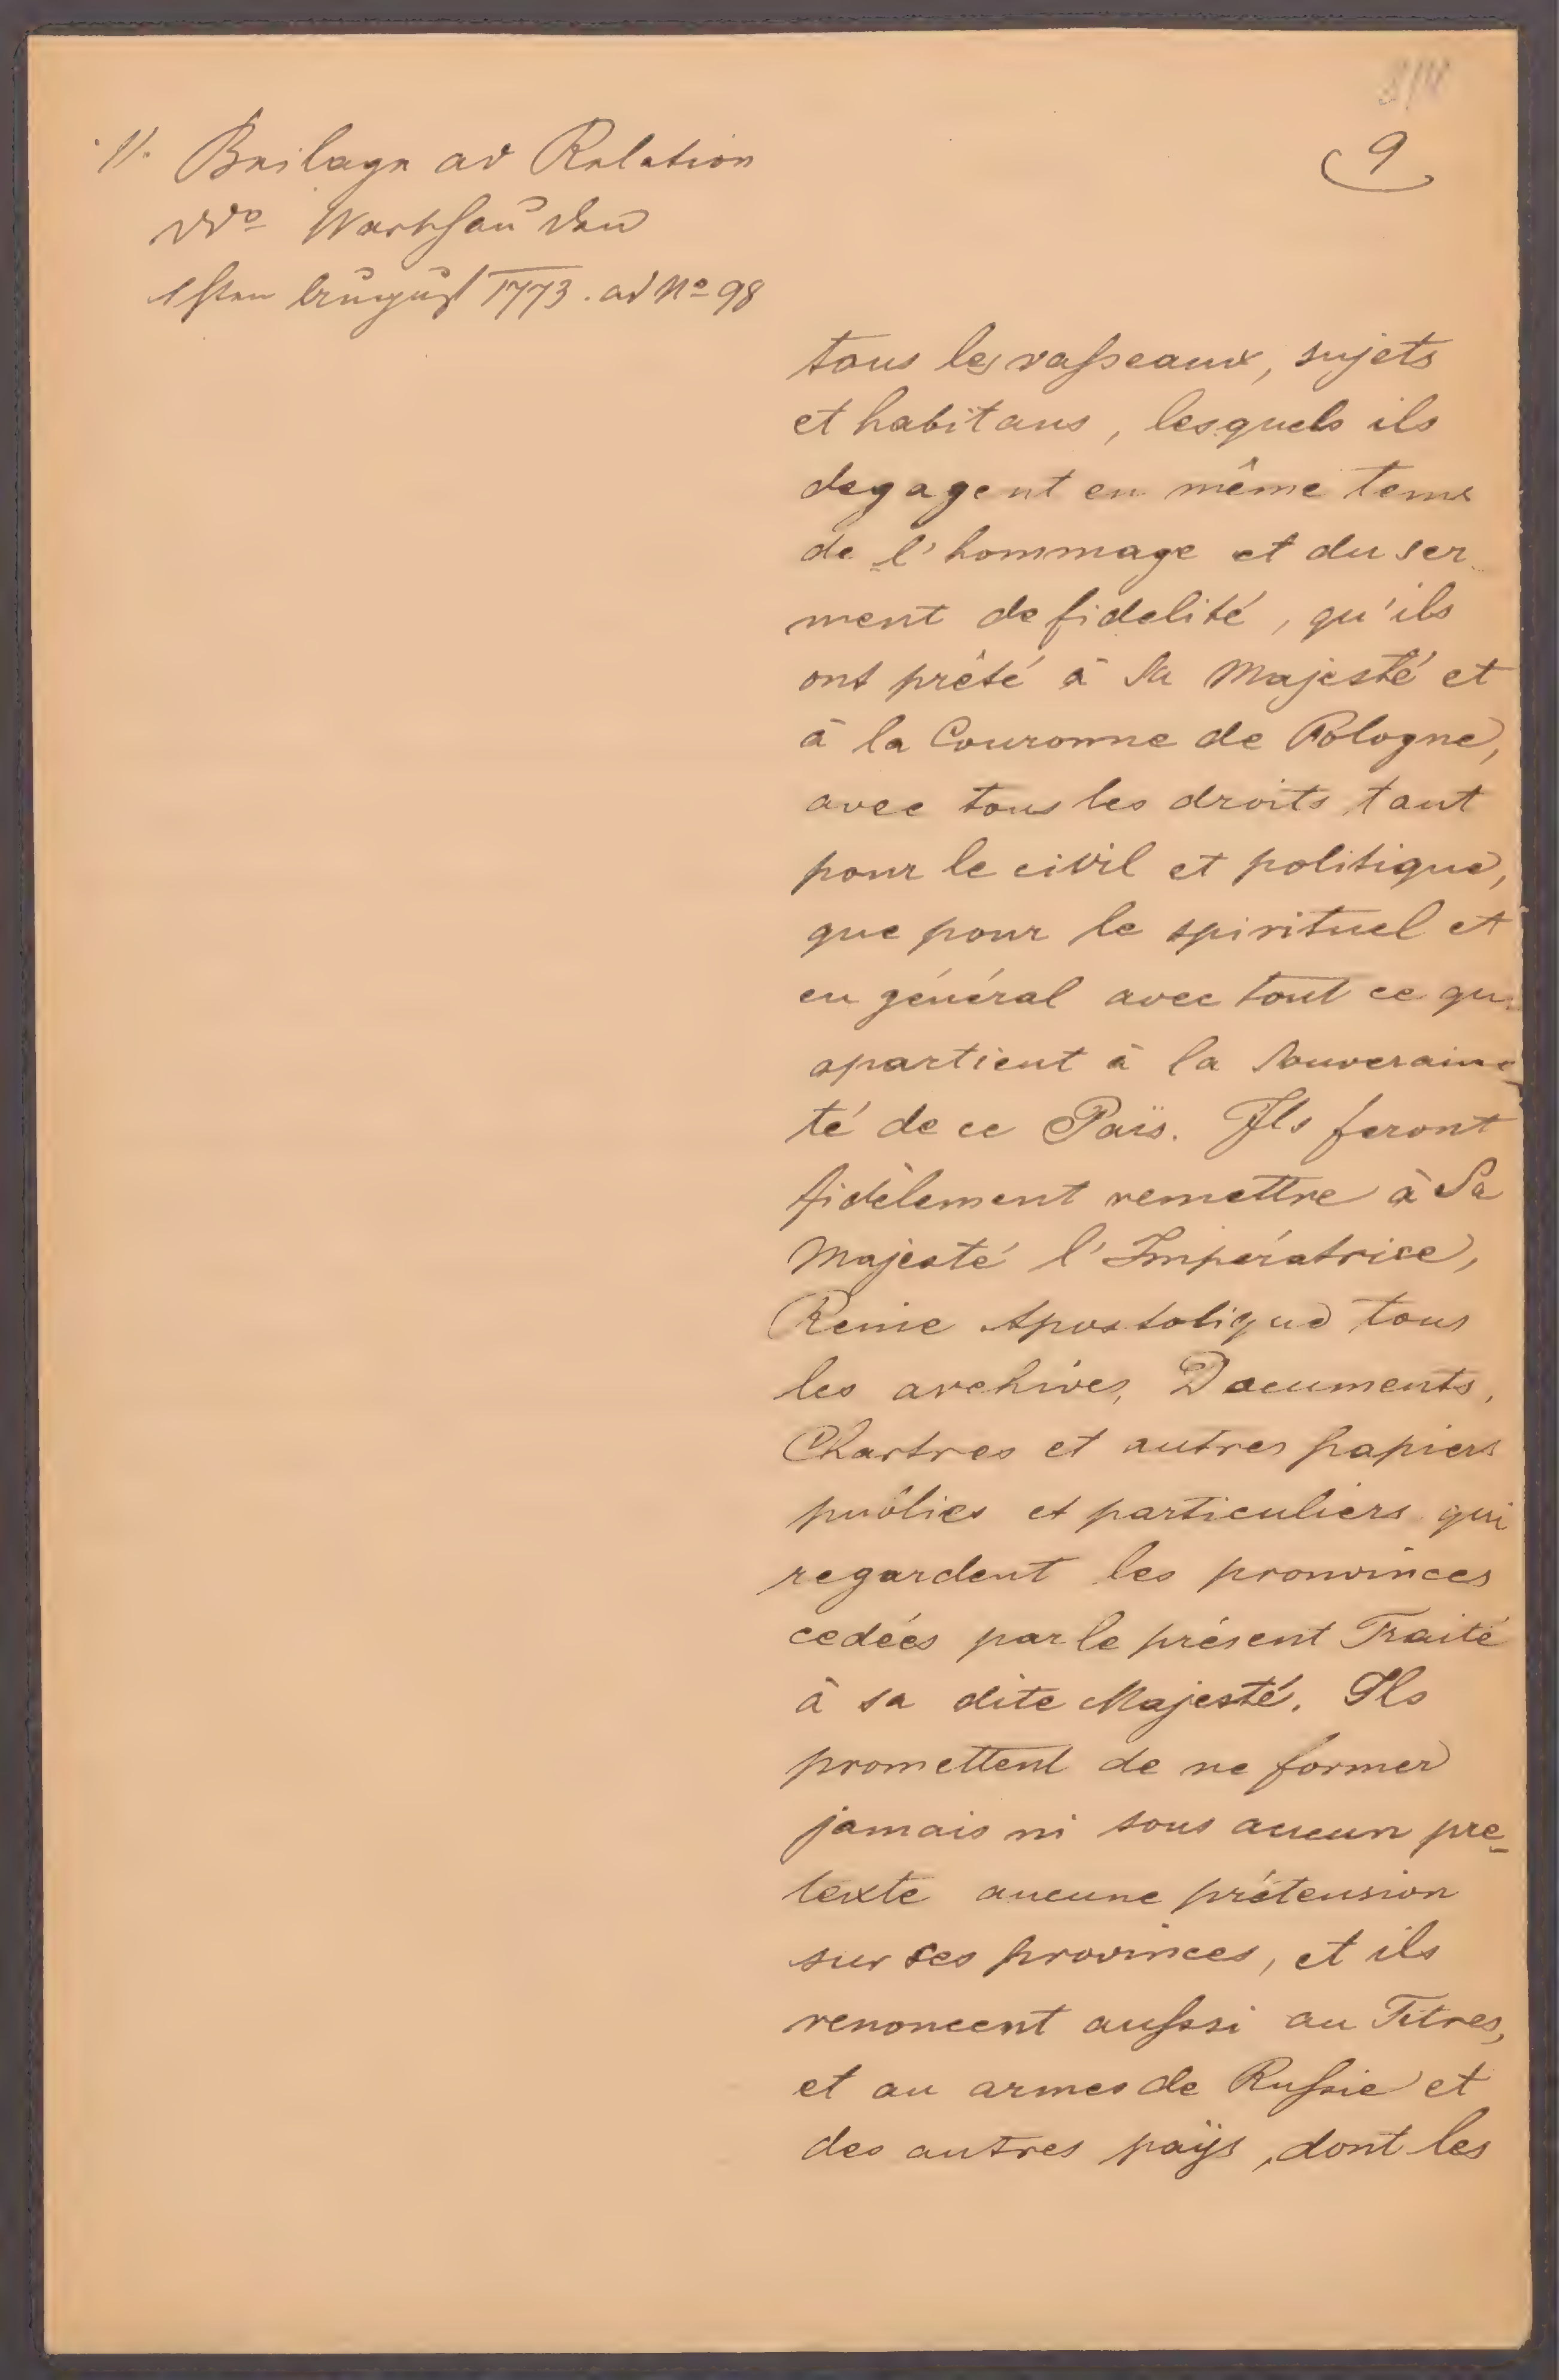 11. Beilage ad Relation
ddo Warschau den
1sten August 1773. ad No 98
9
tous les vaſseaux, sujets
et habitans, lesquels ils
degagent en même tems
de l'hommage et du ser
ment de fidelité, qu'ils
ont prêté à Sa Majesté et
à la Couronne de Pologne,
avec tous les droits tant
pour le civil et politique,
que pour le spirituel et
en général avec tout ce qui
apartient à la Souveraine
té de ce Païs. Ils feront
fidèlement remettre à Sa
Majesté l'Impératrice,
Reine Apostolique tous
les archives, Documents,
Chartres et autres papiers
publics et particuliers qui
regardent les pronvinces
cedées par le présent Traité
à sa dite Majesté. Ils
promettent de ne former
jamais ni sous aucun pre-
texte aucune prétension
sur ses provinces, et ils
renoncent auſssi au Titres,
et au armes de Ruſsie et
des autres paÿs, dont les